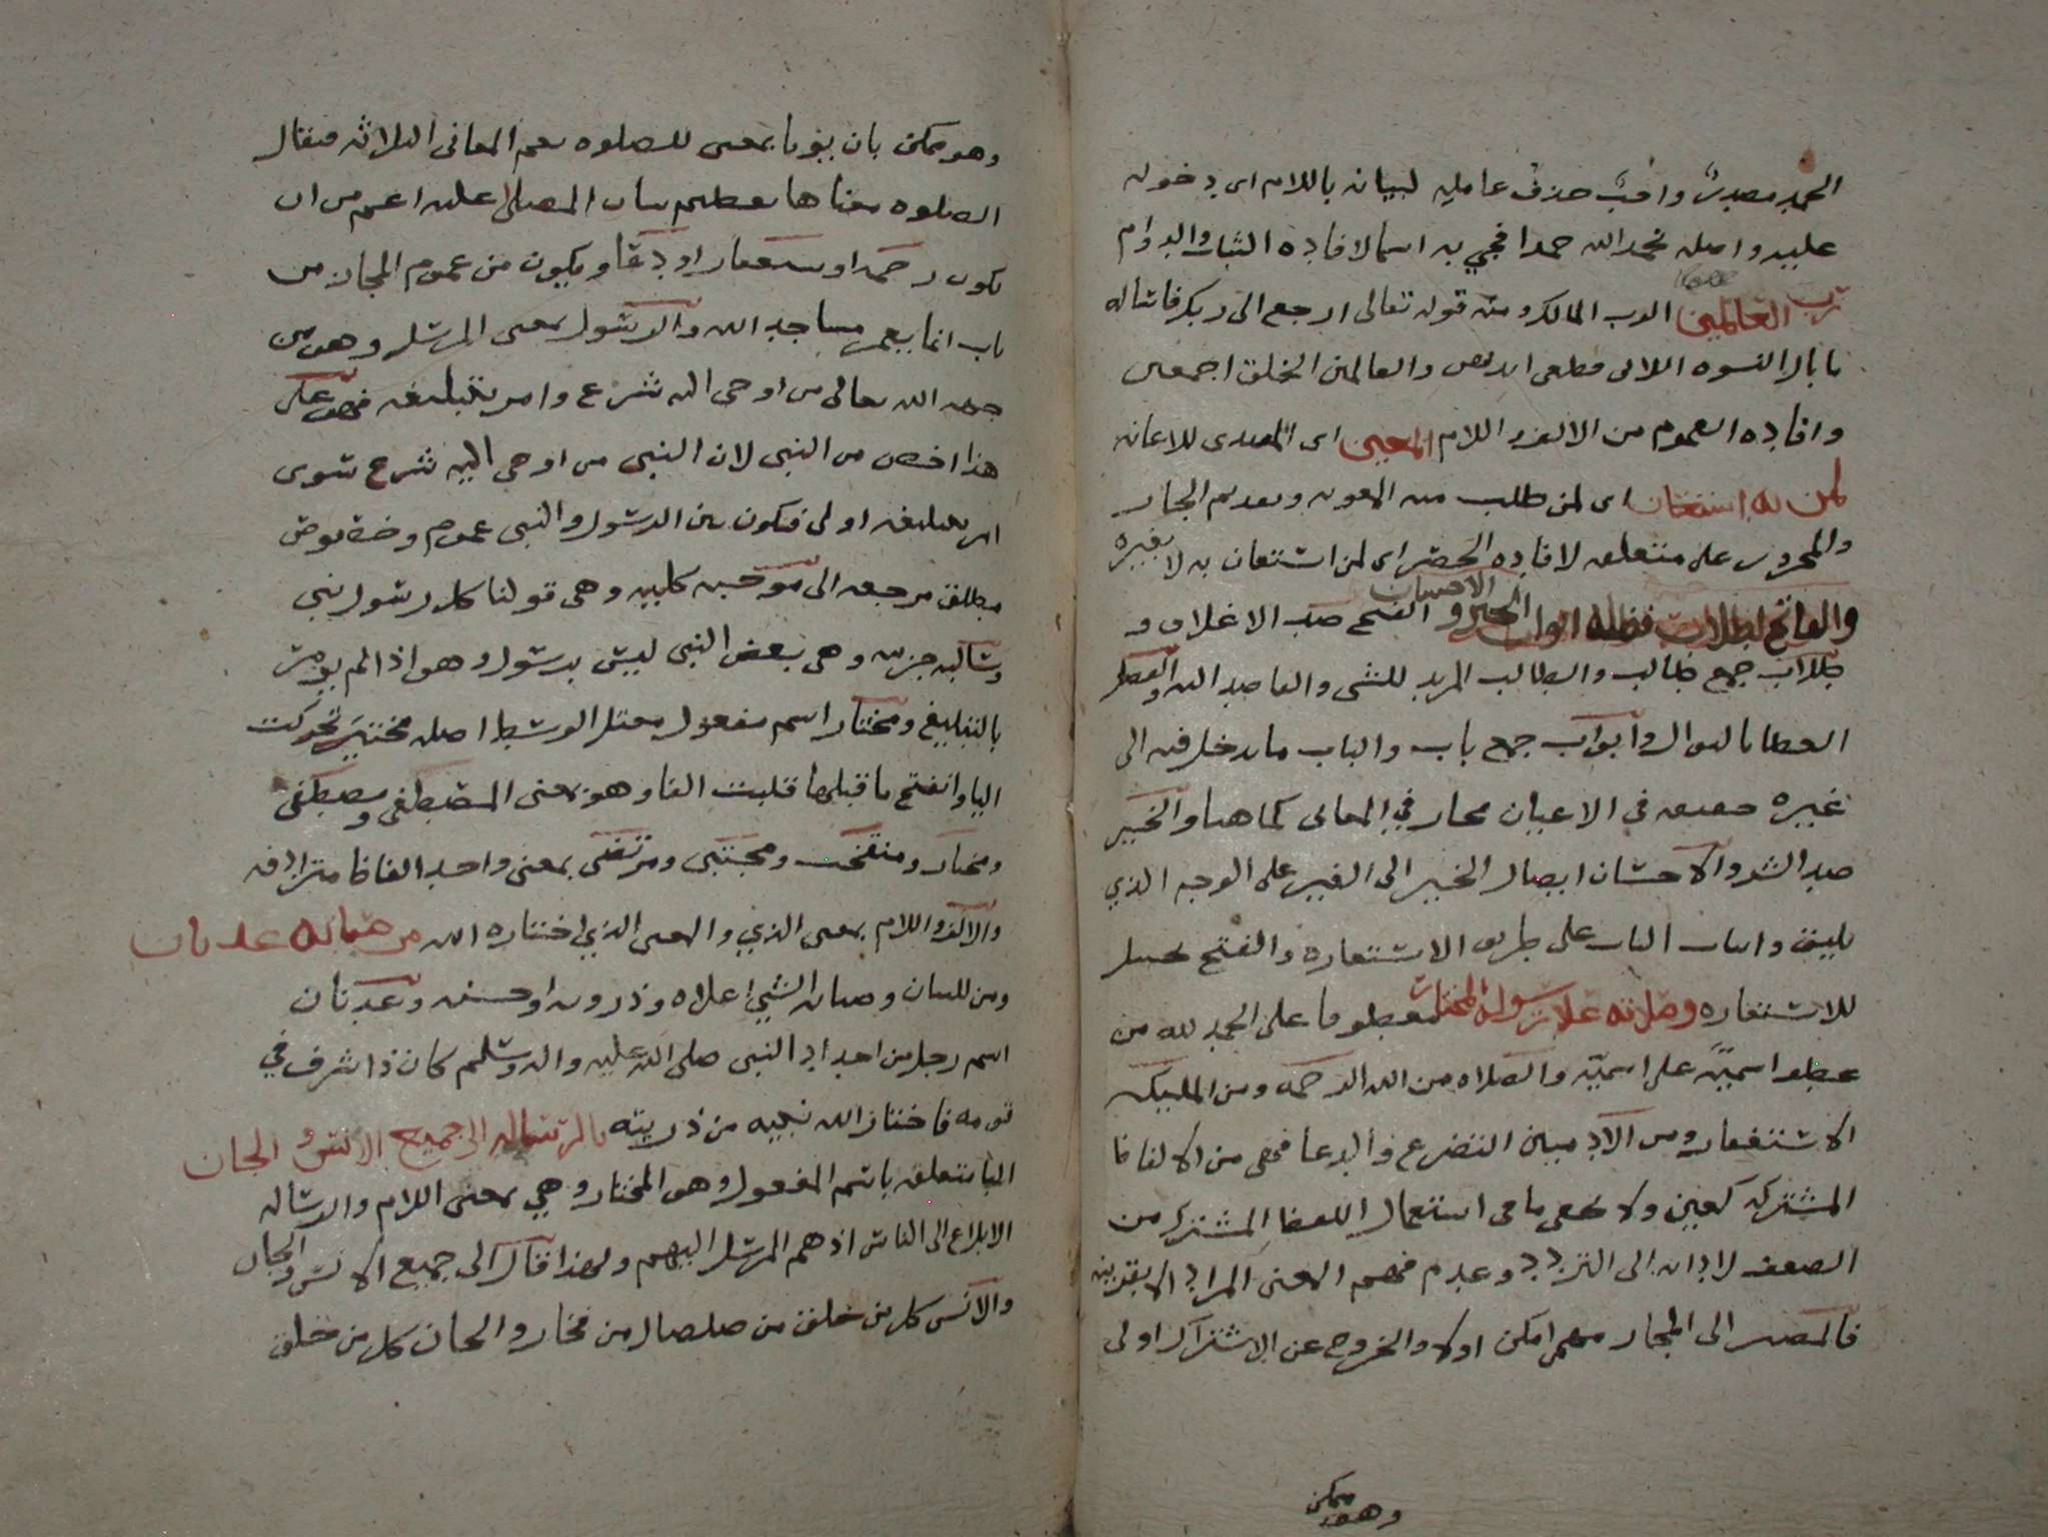 الحمد مصدر واجب حذف عامله لبيانه باللام اى دخوله
عليه واصله نحمد الله حمدا فجي به اسما لافاده الثبات والدوام
رب العالمين الرب المالك ومنه قوله تعالى ارجع الى ربك فاساله
ما بال النسوه اللاتى قطعن ايديهن والعالمين الخلق اجمعين
وافاده العموم من الالف واللام المعين اى المعدى للاعانه
لمن به استعان اى لمن طلب منه المعونه وتقديم الجار
والمجرور على متعلقه لافاده الحصر اى لمن استعان به لا بغيره
والفاتح لطلاب فضله ابواب الخير و الاحسان الفتح ضد الاغلاق و
طلاب جمع طالب والطالب المريد للشى والقاصد اليه والفضل
العطا بالنوال وابواب جمع باب والباب ما يدخل فيه الى
غيره حقيقه فى الاعيان مجاز في المعانى كما هنا والخير
ضد الشر والاحسان ايصال الخير الى الغير على الوجه الذي
يليق واثبات الباب على طريق الاستعاره والفتح تخييل
للاستعاره وصلاته على رسوله المختار معطوفا على الحمد لله من
عطف اسميّة على اسميّة والصلاه من الله الرحمه ومن المليكه
الاستغفار ومن الادميين التضرع والدعا فهي من الالفاظ
المشتركه كعين ولا يخفى ما فى استعمال اللفظ المشترك من
الضعف لادائه الى التردد وعدم فهم المعنى المراد الا بقرينه
فالمصير الى المجاز مهما امكن اولا والخروج عن الاشتراك اولى
وهو ممكن
وهو ممكن بان يؤتا بمعنى للصلوه يعم المعانى الثلاثه فيقال
الصلوه معناها تعظيم شان المصلى عليه اعم من ان
يكون رحمه او استغفار او دعا ويكون من عموم المجاز من
باب انما يعمر مساجد الله والرسول بمعنى المرسل وهو من
جهه الله تعالى من اوحى اليه شرع وامر بتبليغه فهو على
هذا اخص من النبى لان النبى من اوحى اليه شرع سوى
امر بتبليغه اولى فيكون بين الرسول والنبى عموم وخصوص
مطلق مرجعه الى موجبه كليه وهى قولنا كل رسول نبى
وسالبه جزئيه وهى بعض النبى ليس برسول وهو اذا لم يؤمر
بالتبليغ ومختار اسم مفعول معتل الوسط اصله مختيَر تحركت
اليا وانفتح ما قبلها قلبت الفا وهو بمعنى المصطفى ومصطفى
ومختار ومنتخب ومجتبى ومرتضى بمعنى واحد الفاظا مترادفه
والالف واللام بمعنى الذي والمعنى الذي اختاره الله من صيابه عدنان
ومن للبيان وصيابه الشي اعلاه وذروته او حسنه وعدنان
اسم رجل من اجداد النبى صلى الله عليه واله وسلم كان ذا شرف في
قومه فاختار الله نبيه من ذريته بالرساله الى جميع الانس و الجان
البا يتعلق باسم المفعول وهو المختار وهي بمعنى اللام والرساله
الابلاغ الى الناس اذ هم المرسل اليهم ولهذا قال الى جميع الانس والجان
والانس كل من خلق من صلصال من فخار والجان كل من خلق